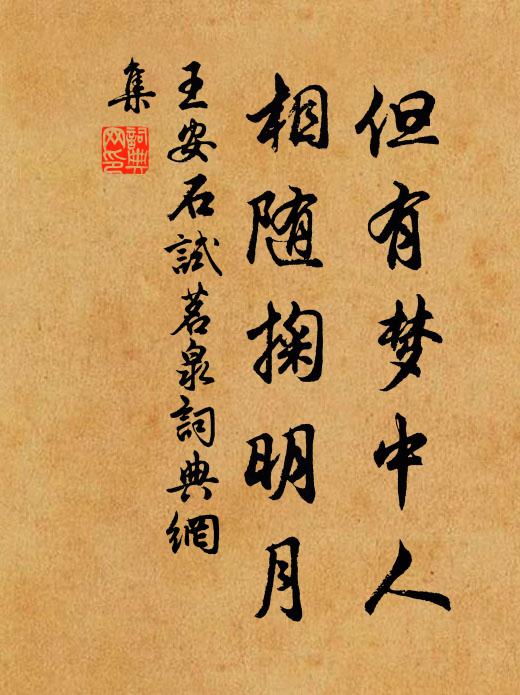 但有梦中人
相随掬明月
王安石試茗泉詞典網
集
詞典
网印